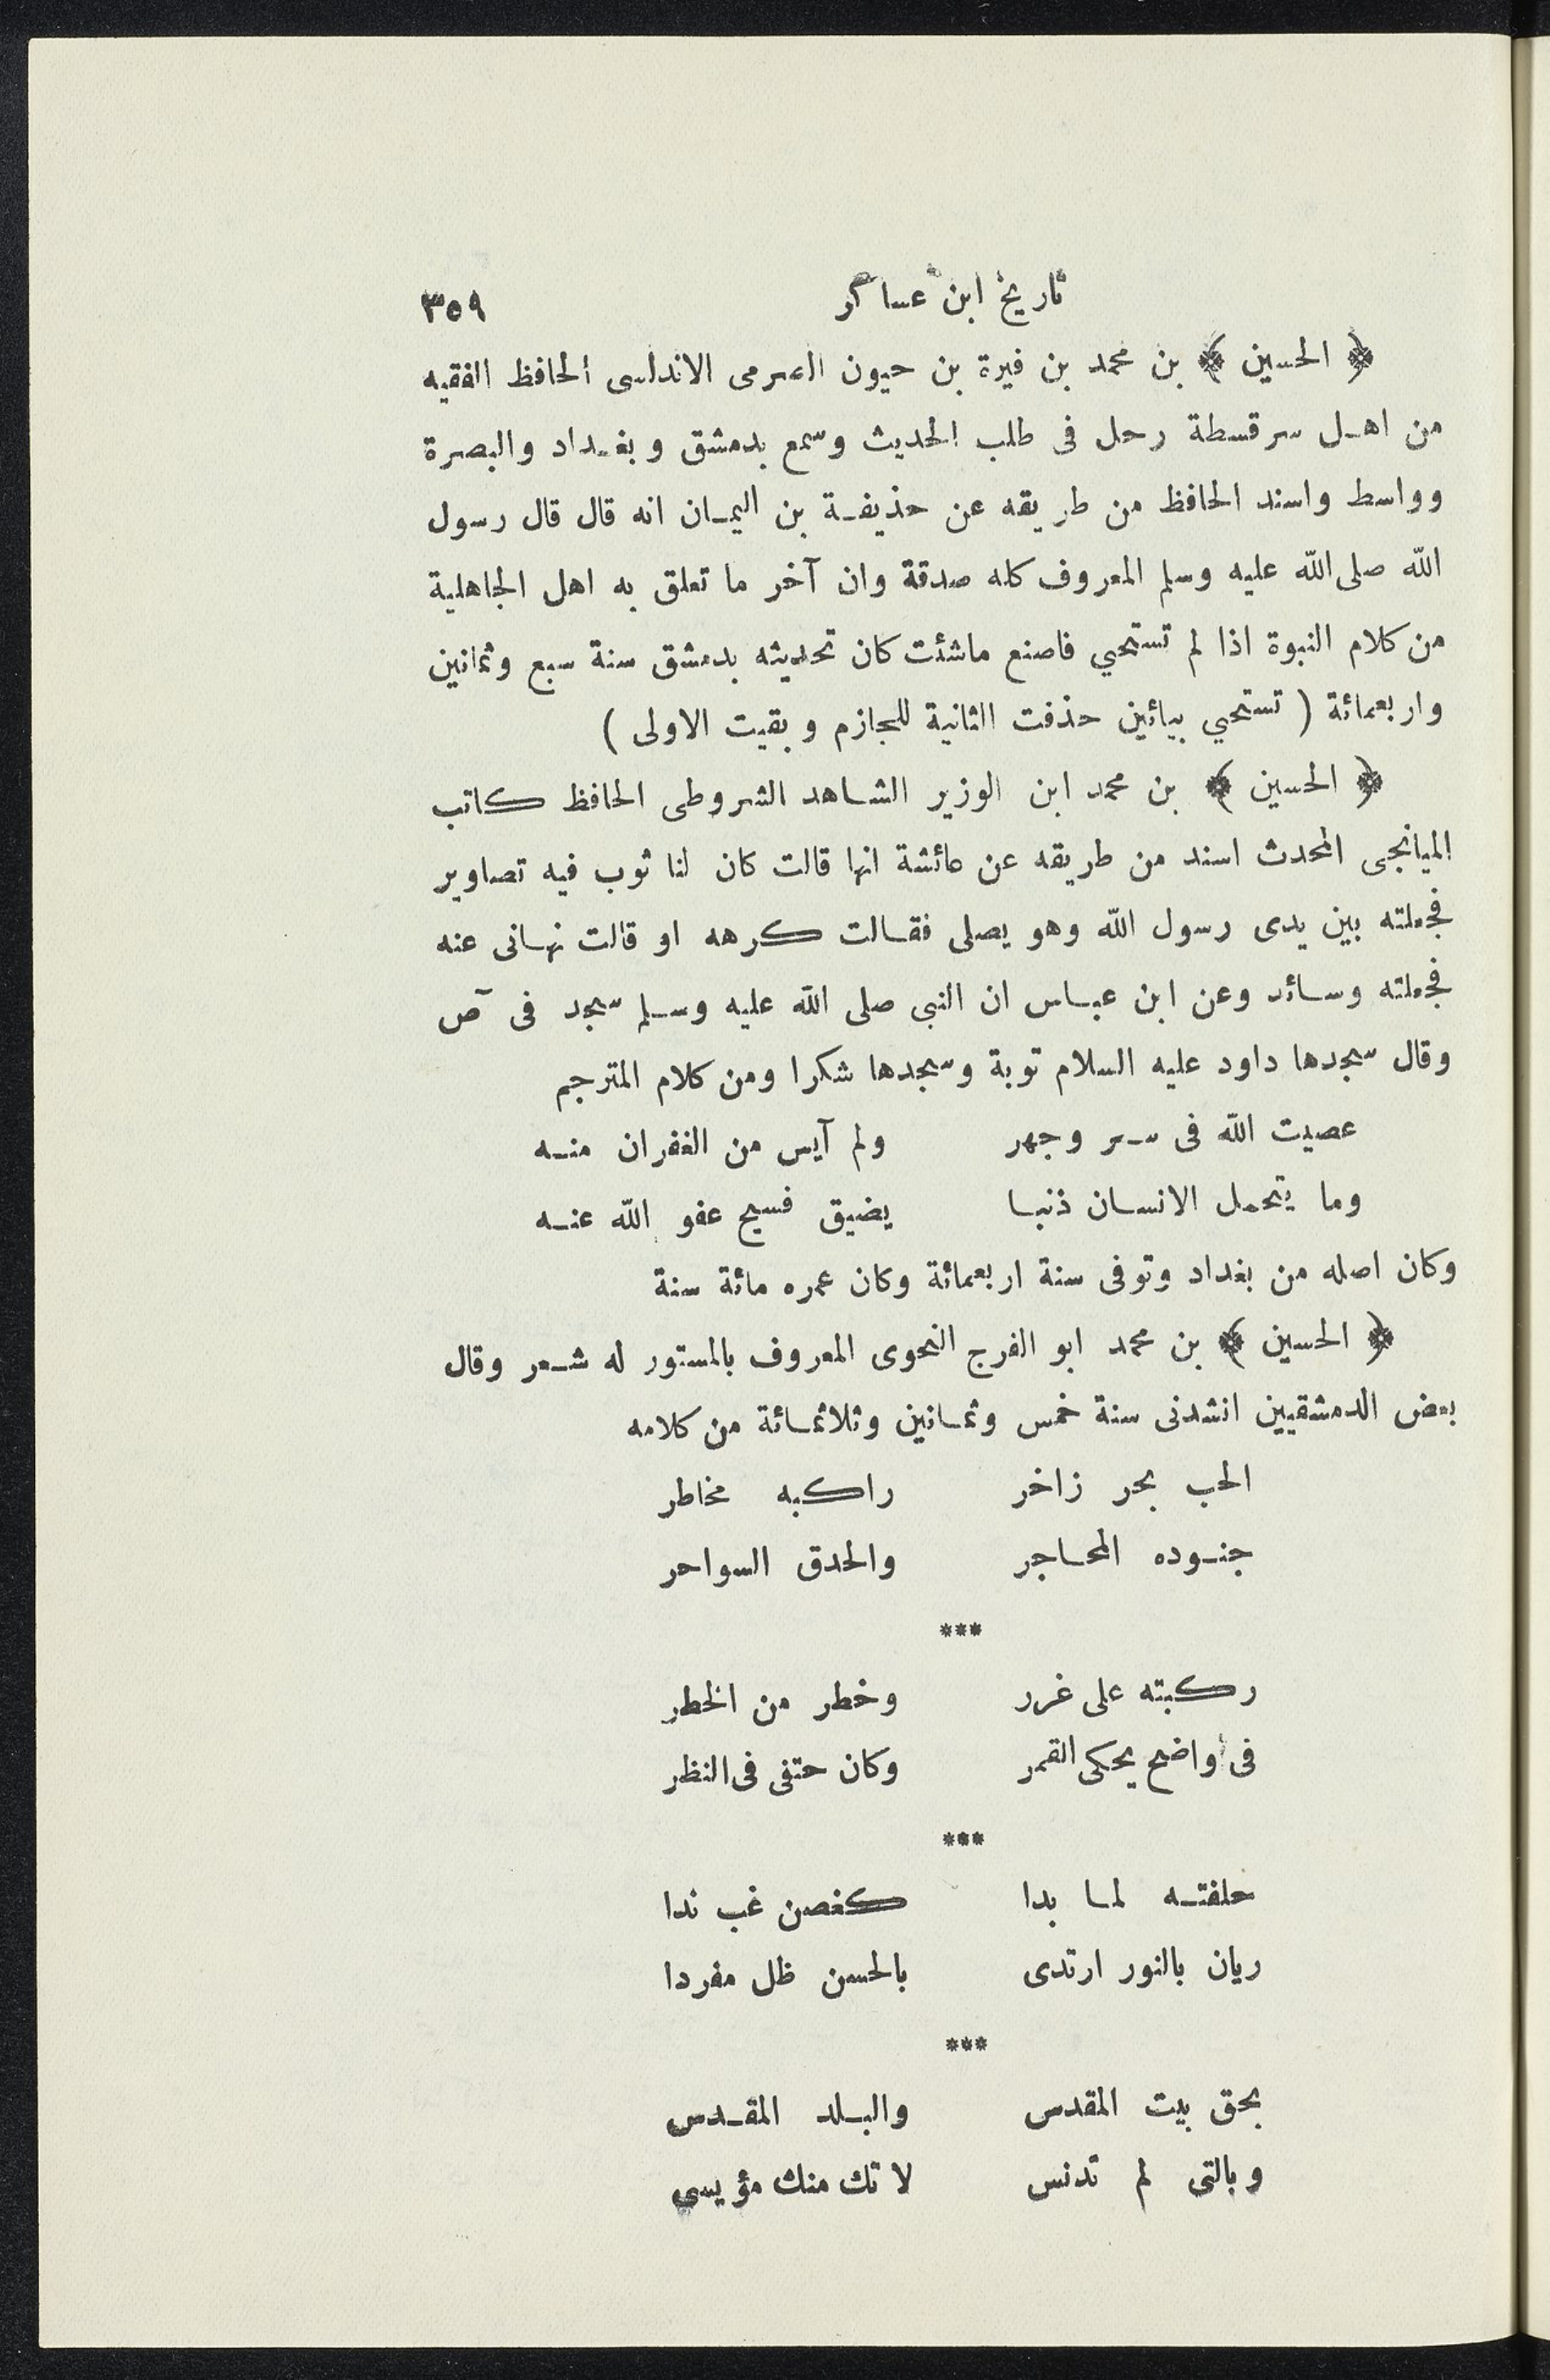 تاريخ ابن عساكر ٣٥٩
﴿ الحسين ﴾ بن محمد بن فيرة بن حيون الاندلسى الحافظ الفقيه
من اهل سرقسطة رحل فى طلب الحديث وسمع بدمشق وبغداد والبصرة
وواسط واسند الحافظ من طريقه عن حذيفة بن اليمان انه قال قال رسول
الله صلى الله عليه وسلم المعروف كله صدقة وان آخر ما تعلق به اهل الجاهلية
من كلام النبوة اذا لم تستحيي فاصنع ماشئت كان تحديثه بدمشق سنة سبع وثمانين
واربعمائة ( تستحيي بيائين حذفت الثانية للجازم وبقيت الاولى )
﴿ الحسين ﴾ بن محمد ابن الوزير الشاهد الشروطى الحافظ كاتب
الميانجى المحدث اسند من طريقه عن عائشة انها قالت كان لنا ثوب فيه تصاوير
فجعلته بين يدى رسول الله وهو يصلى فقالت كرهه او قالت نهانى عنه
فجعلته وسائد وعن ابن عباس ان النبى صلى الله عليه وسلم سجد فى ص
وقال سجدها داود عليه السلام توبة وسجدها شكرا ومن كلام المترجم
عصيت الله فى سر وجهر ولم آيس من الغفران منه
وما يتحمل الانسان ذنبا يضيق فسيح عفو الله عنه
وكان اصله من بغداد وتوفى سنة اربعمائة وكان عمره مائة سنة
﴿ الحسين ﴾ بن محمد ابو الفرج النحوى المعروف بالمستور له شعر وقال
بعض الدمشقيين انشدنى سنة خمس وثمانين وثلاثمائة من كلامه
الحب بحر زاخر راكبه مخاطر
جنوده المحاجر والحدق السواحر
***
ركبته على غرر وخطر من الخطر
فى واضح يحكى القمر وكان حتفى فى النظر
***
حلفته لما بدا كغصن غب ندا
ريان بالنور ارتدى بالحسن ظل مفردا
***
بحق بيت المقدس والبلد المقدس
وبالتى لم تدنس لا تك منك مؤيسى